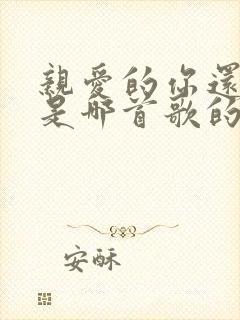 親愛的你還
是那首歌的
安酥